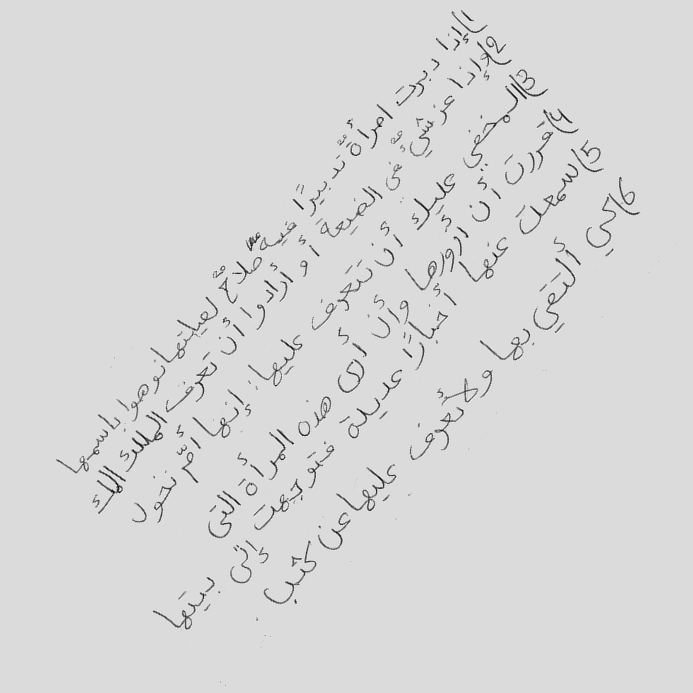 1) إذا دبرت امرأةٌ تدبيرًا فيه صلاحٌ لعيلتها نوهوا باسمها
2) وإذا عز شيءٌ في الضيعة أو أرادوا أن تعرف الملك الملك
3) المخفي عليك أن تتعرف عليها: إنها أم نخول
4) قررت أن أزورها وأن أرى هذه المرأة التي
5) سمعت عنها أخبارًا عديدة فتوجهت إلى بيتها
6) كي ألتقي بها ولأتعرف عليها عن كثب.